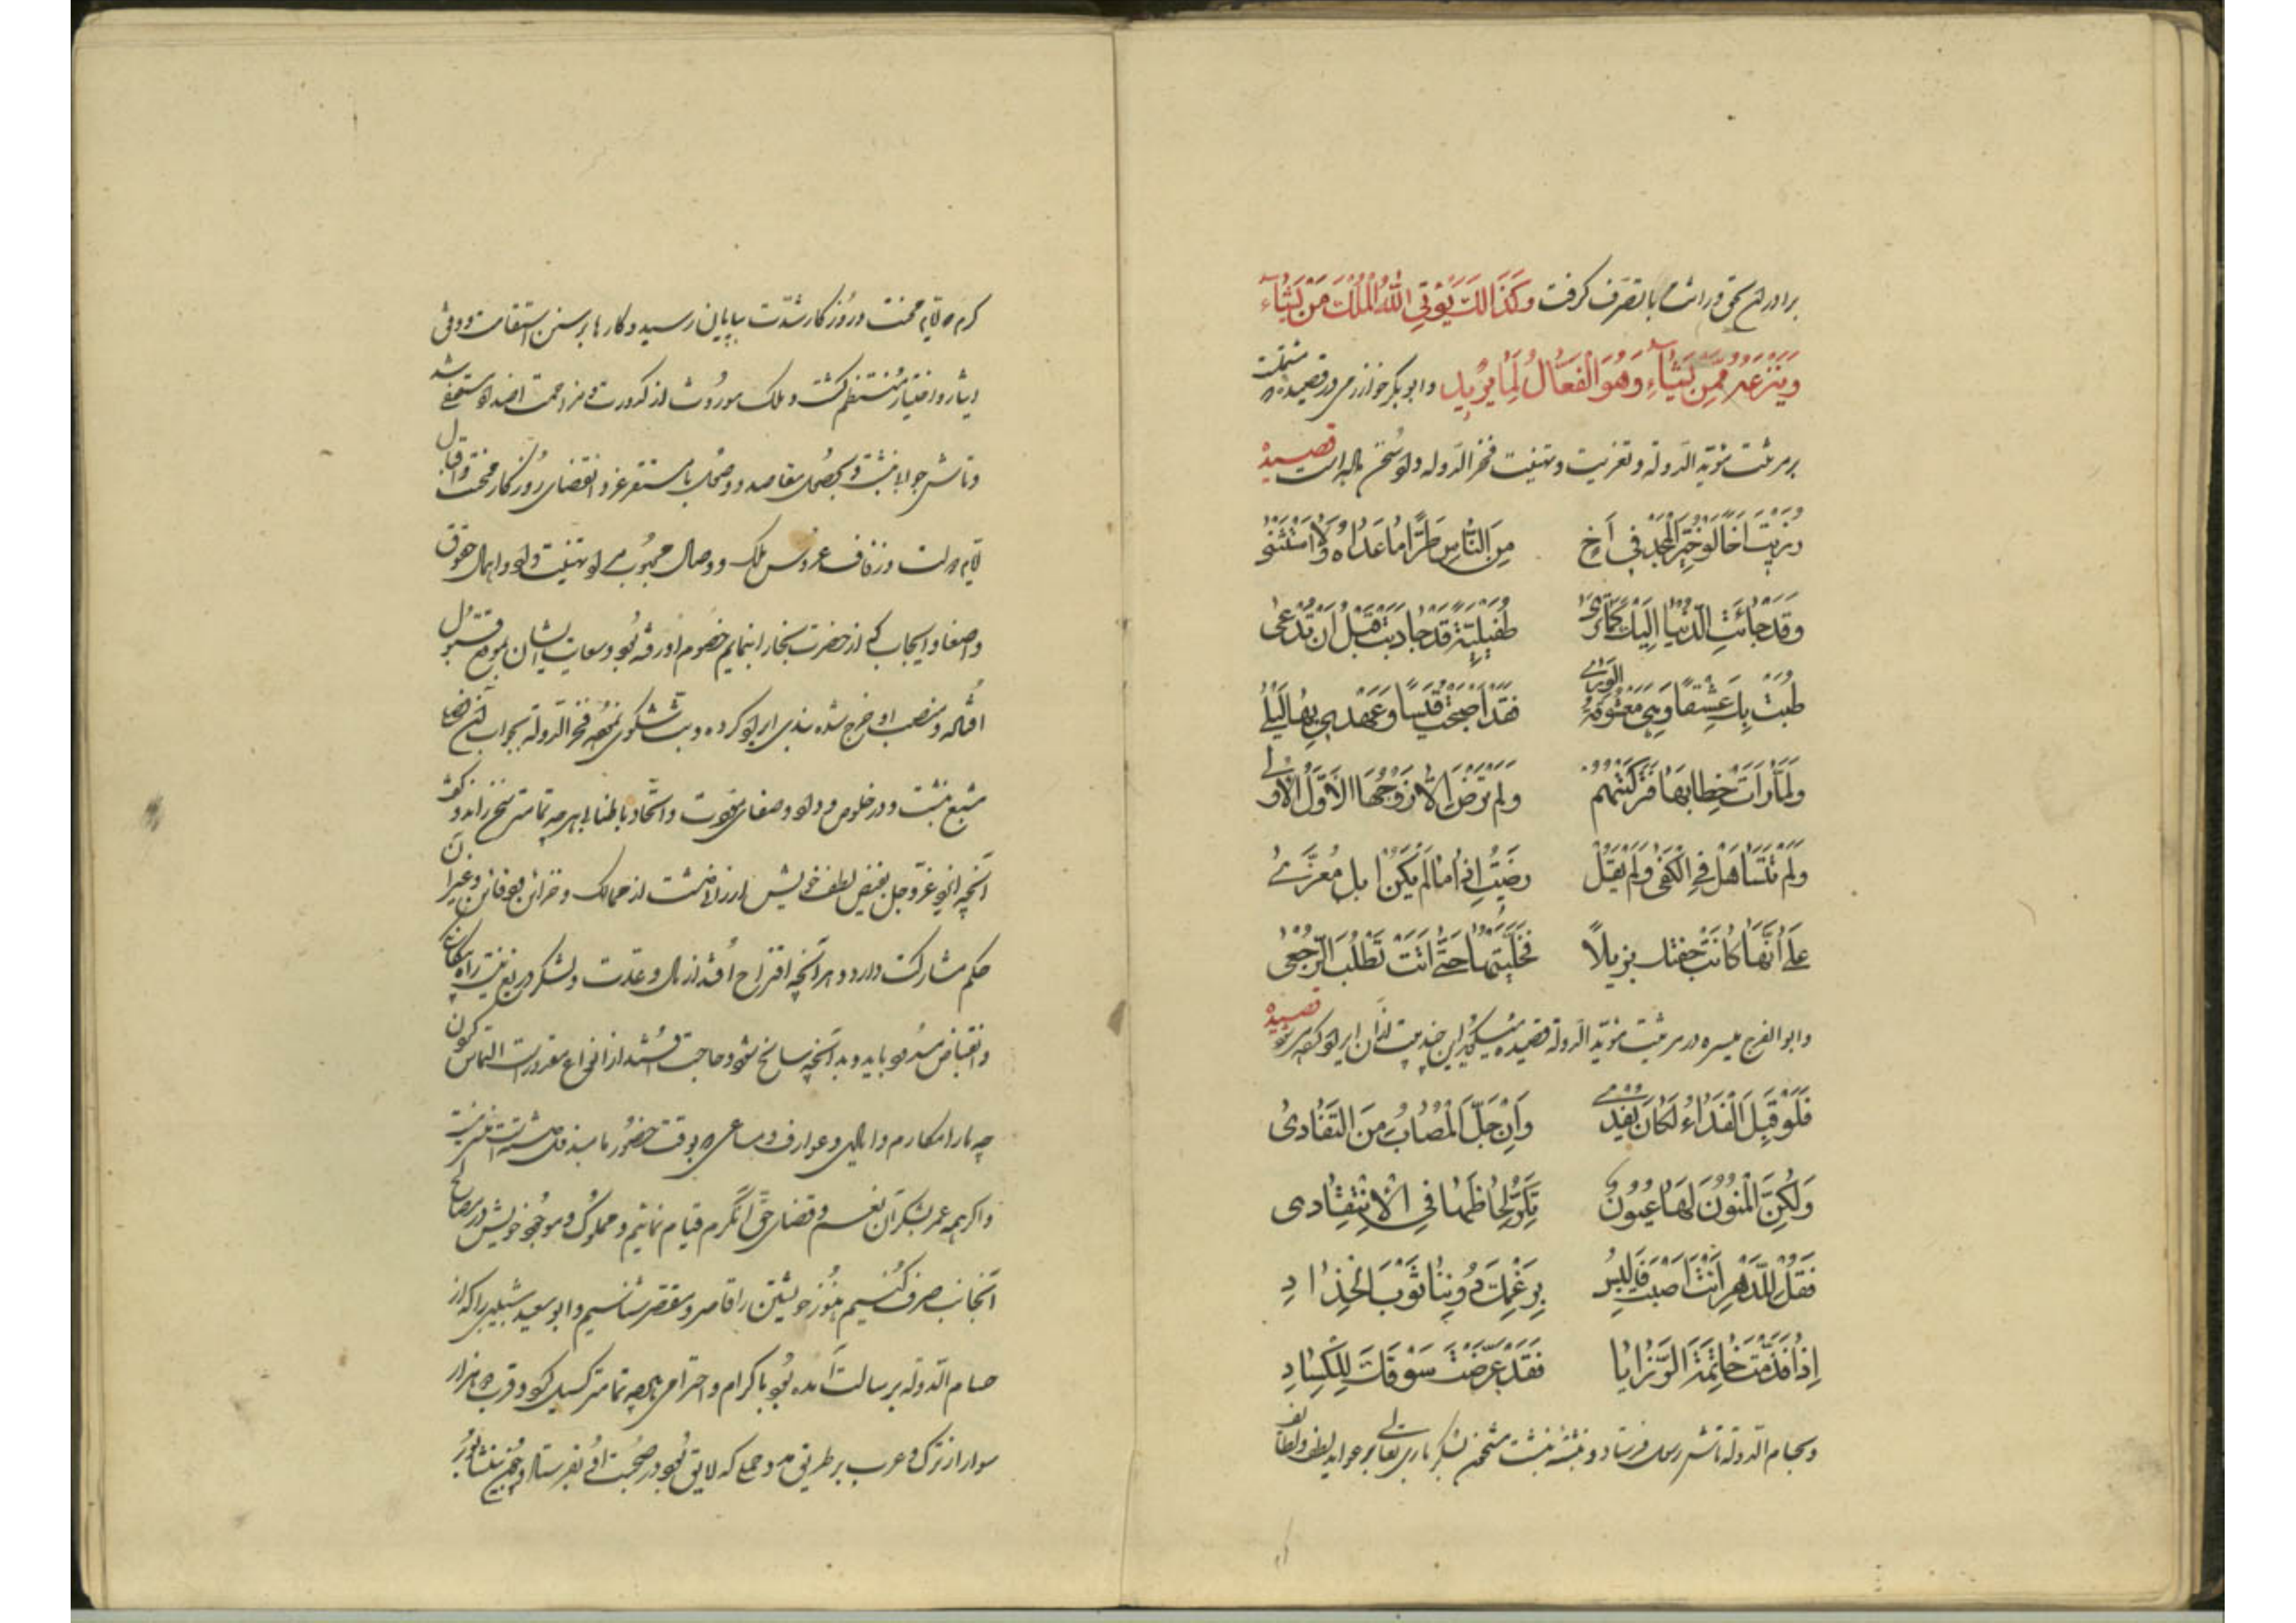 برادران بحق وراثت با تصرف گرفت وَكَذَالِكَ يُؤتِي اللّٰهُ المُلْكَ مَنْ يَشَاءُ
وَيَنْزِعُهُ مِمَّنْ يَشَاءُ وَهُوَ الْفَعَّالُ لِمَا يُرِيدُ وابوبکر خوارزمی در قصیده
بر مرثیت مؤید الدوله و تعزیت و تهنیت فخر الدوله قصیده
رزيت اخا لو خيّر المجد في اخ من الناس طرا ما عداه ولا استثنى
وقد جائت الدنيا اليك كما ترى طفيلية قد جاوبت قبل ان تدعى
صبت بك عشقا وهي معشوقة الورى فقد اصبحت قيسا وعهدي بها ليلى
ولما رات خطابها فركتهم ولم ترض الا زوجها الاول الاولى
ولم تتساهل في الكفى ولم يقل رضيت اذا ما لم يكن ابل معزى
على انها كانت جفتك نزيلا فخليتها حتى اتت تطلب الرجعى
وابو الفرج میسره در مرثیت مؤید الدولة قصیده میگوید این چند بیت قصیده
فلو قبل الفداء لكان يفدى وان جل المصاب من التفادى
ولكن المنون لها عيون تكر لحاظها في الانتقادى
فقل للدهر انت اصبت فالبس برغمك دوننا ثوب الحداد
اذا قدمت خاتمة الرزايا فقد عرضت سوقك للكساد
وبحسام الدوله تاش رسول فرستاد و نبشته نبشت مشحون بشکر باری تعالی بر عواید لطف و لطایف
کرم ایام محنت و روزگار شدت بپایان رسید و کارها بر سنن استقامت و وفق
ایثار و اختیار منتظم گشت و ملک موروث از کدورت و مزاحمت اضداد مستصفی شد
و تاش جواب نبشت و بحصول مقاصد و وصول با مستقر عز و انقضای روزگار محنت و اقبال
ایام دولت و زفاف عروس ملک و وصال محبوب تهنیت داد و اهمال حقوق
واصفا و ایجاب که از حضرت بخارا بنمایم خصوم او رفته بود و سعایت ایشان بموقع قبول
افتاده و منصب او خرج شده نبذی ایراد کرده و بث شکوی نموده فخر الدوله بجواب آن فصلی
مشبع نبشت و در خلوص وداد و صفای عقیدت و اتحاد باطن هرچه تمامتر سخن راند و گفت
آنچه ایزد عز و جل بفیض لطف خویش ارزانی داشت از ممالک و خزاین و دفاین و غیر آن
حکم مشارکت دارد و هرآنچه اقتراح افتد از مال و عدت و لشکر دریغ نیست
وانقباض باید و بدانچه سانح شود و حاجت افتد از انواع مقدورات التماس
چه ما را مکارم و ایادی و عوارف و مساعی او بوقت حضور ما
و اگر همه عمر بشکر آن نعم و قضای حق آن کرم قیام نمائیم و مملوک و موجود خویش در مصالح
آنجانب صرف کنیم هنوز خویشتن را قاصر و مقصر شناسیم و ابو سعید شبیبی را که از
حسام الدوله برسالت آمده بود با کرام و احترام هرچه تمامتر گسیل کرد و قرب هزار
سوار از ترک و عرب بر طریق مدد حملی که لایق بود در صحبت او بفرستاد و چون بنشابور